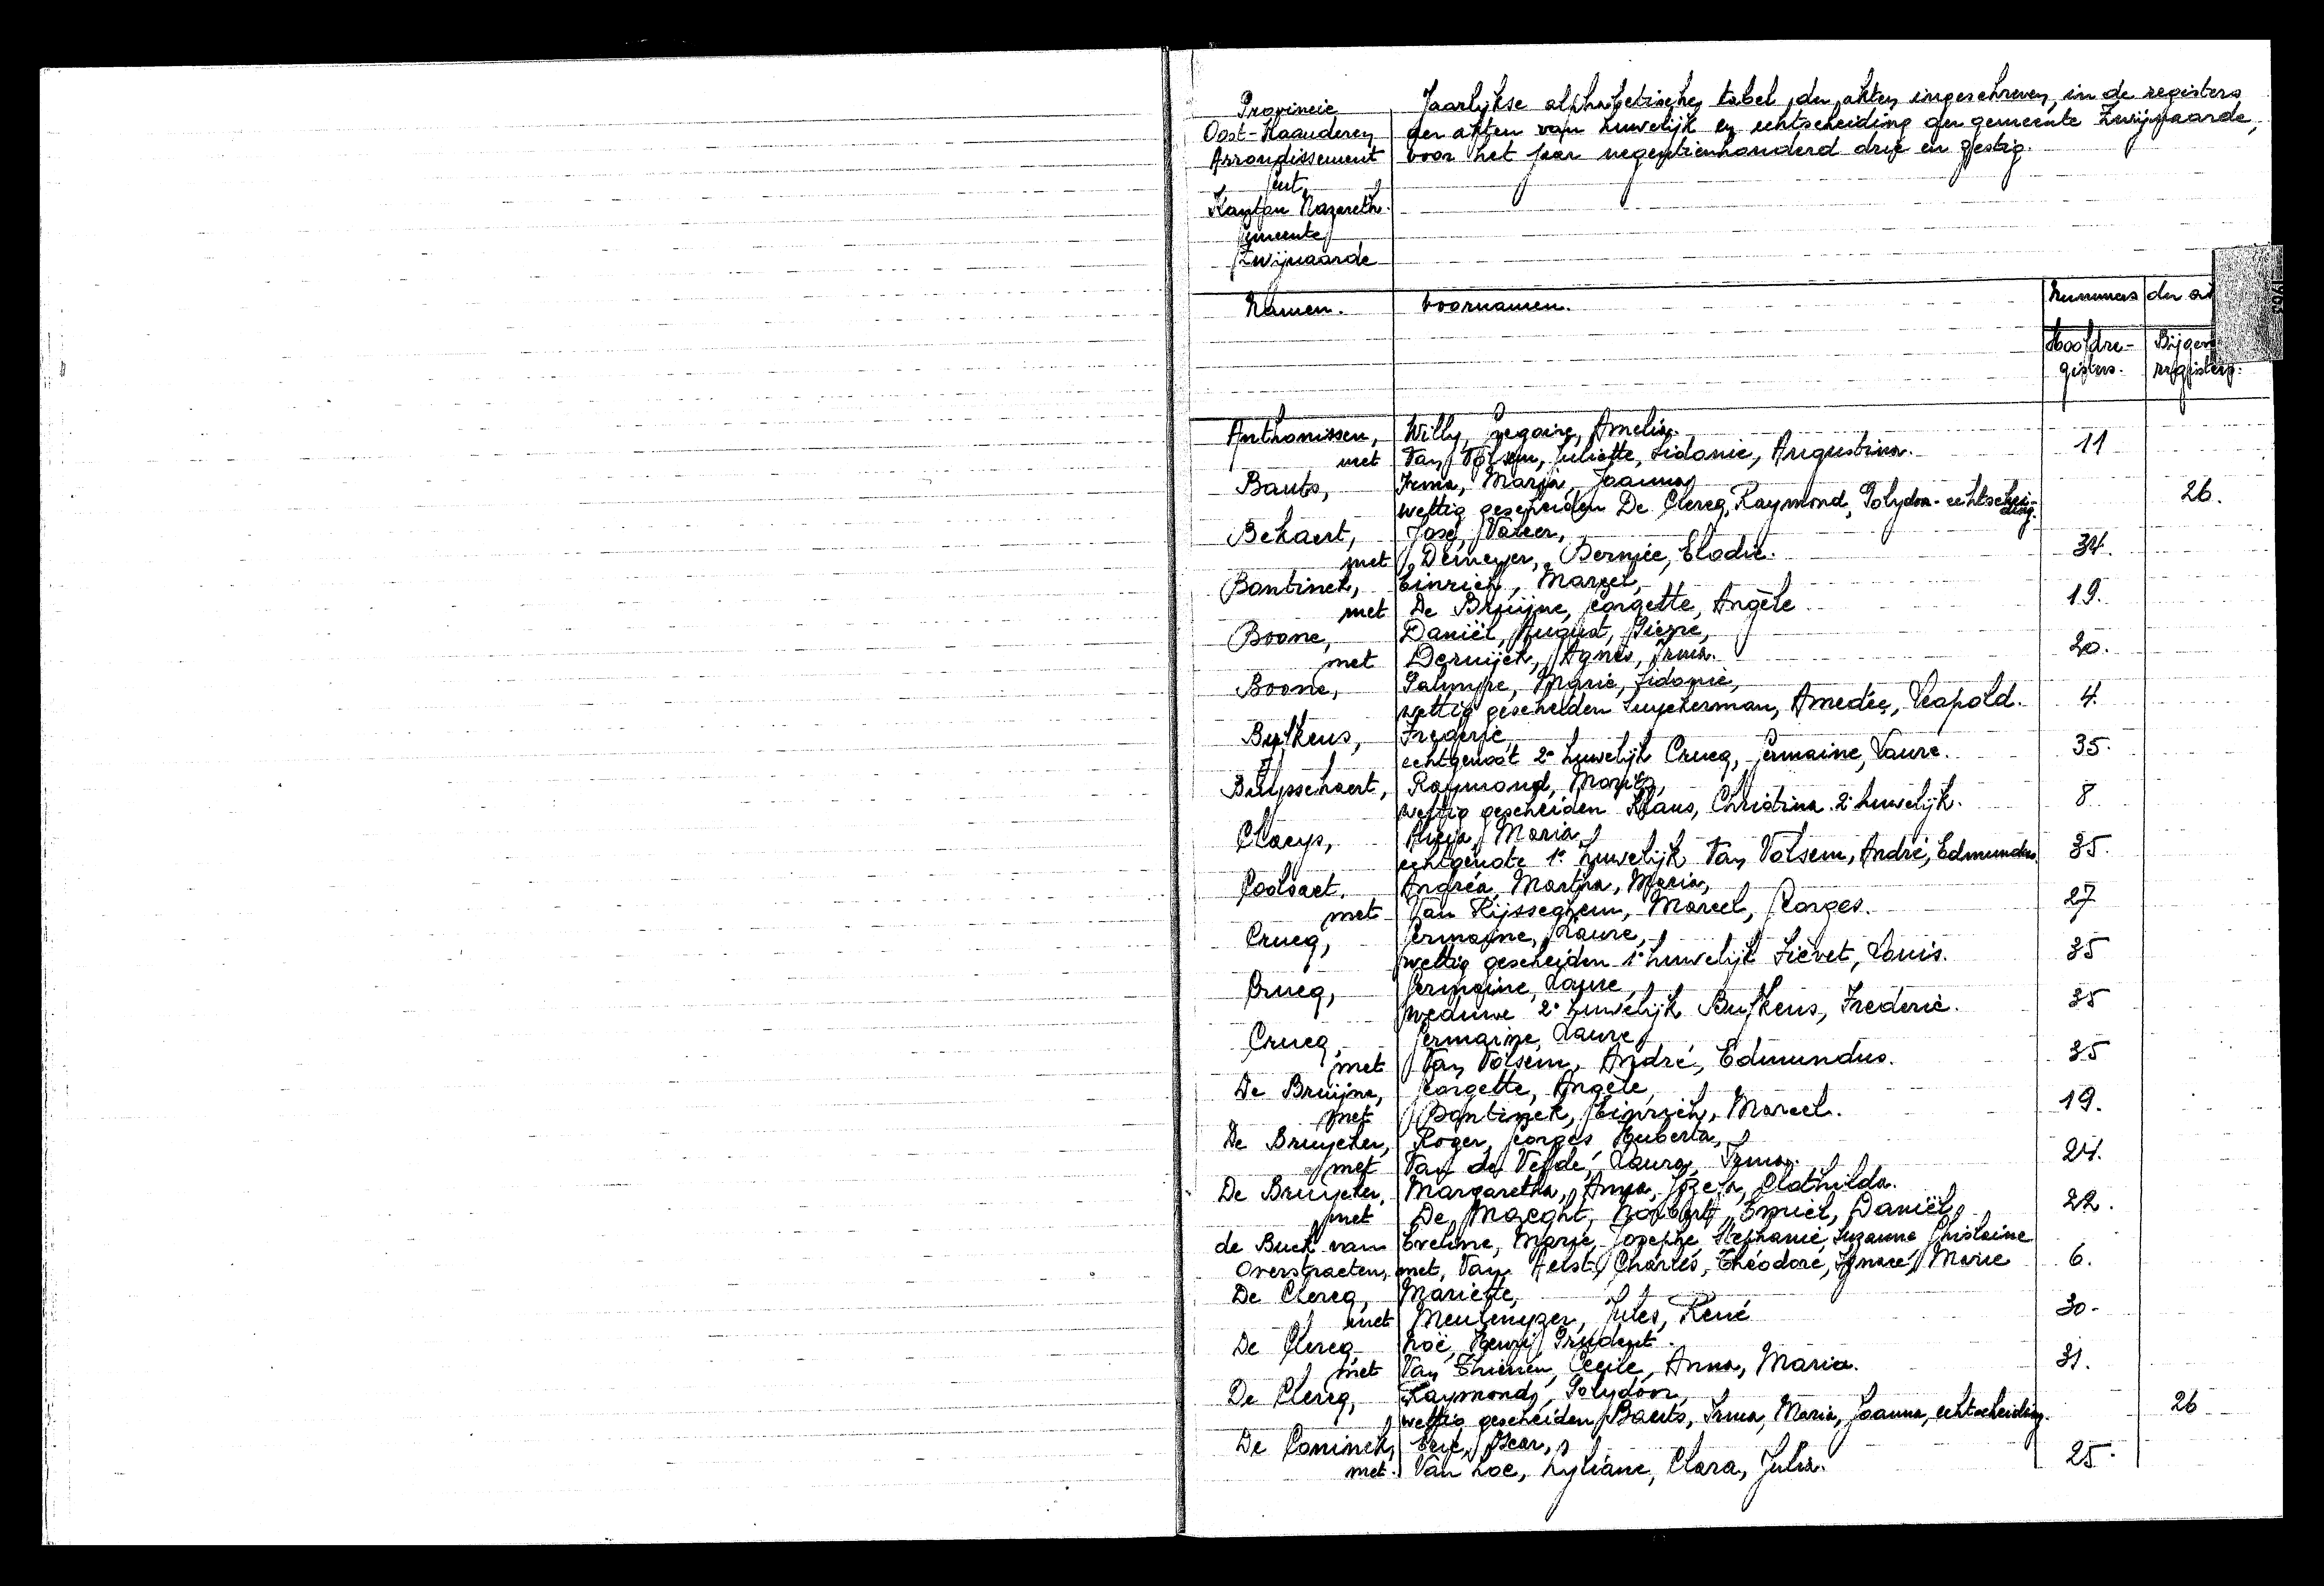 Provincie
Oost-Vlaanderen
Arrondissement
Gent
Kanton Nazareth.
Gemeente
Zwijnaarde
Jaarlijkse alphabetische tabel der akten ingeschreven in de registers
der akten van huwelijk en echtscheiding der gemeente Zwijnaarde,
voor het jaar negentienhonderd drie en zestig.
Namen. Voornamen. Nummers der
Hoofdre-
gisters.
registers.
1963
Anthonissen, Willy, Gregoire, Amelia.
met Van Volsem, Juliette, Sidonie, Augustina. 11
Bauts, Irma, Maria, Joanna,
wettig gescheiden De Clercq, Raymond, Polydoor echtschei-
ding. 26.
Bekaert, José, Valeer,
met Demeyer, Bernice, Elodie. 34.
Bontinck, Marcel,
met De Bruijne, Georgette, Angèle 19.
Boone, Daniël, August, Pierre,
met Dernijck, Agnes, Irma. 20.
Boone, Palmyre, Marie, Sidonie,
wettig gescheiden Luyckerman, Amedée, Leopold. 4.
Bufkens, Frederic
echtgenoot 2e huwelijk Crucq, Germaine, Laure. 35.
Buysschaert, Raymond, Maurits,
wettig gescheiden Klaus, Christina 2e huwelijk. 8
Claeys, Maria
echtgenote 1e huwelijk Van Volsem, André, Edmundus. 35.
Coolsaet. Andréa, Martha, Maria,
met Van Rijsseghem, Marcel, Georges. 27
Crucq, Germaine, Laure,
wettig gescheiden 1e huwelijk Liévet, Louis. 35
Crucq, Germaine, Laure,
weduwe 2e huwelijk Bufkens, Frederic. 35
Crucq, Germaine, Laure
met Van Volsem, André, Edmundus. 35
De Bruijne, Georgette, Angèle,
met Bontinck, Marcel. 19.
De Bruycker, Roger, Georges, Huberta,
met Van de Velde, Laura, Irma. 24.
De Bruycker, Margaretha, Anna, Jozefa, Clothilda.
met De Maeght, Norbert, Emiel, Daniël, 22.
de Buck van Eveline, Marie, Josephe, Stephanie, Suzanne Ghislaine
Overstraeten, met, Van Aelst, Charles, Théodore, Ignace, Marie 6.
De Clercq, Mariette,
met Meulenyzer, Jules, René 30.
De Clercq, Noë, Henri, Prudent.
met Van Thienen, Cecile, Anna, Maria. 31.
De Clercq, Raymond, Polydoor,
wettig gescheiden Bauts, Irma, Maria, Joanna, echtscheiding. 26
De Coninck, Eric, Oscar,
met Van Loe, Lyliane, Clara, Julia. 25.